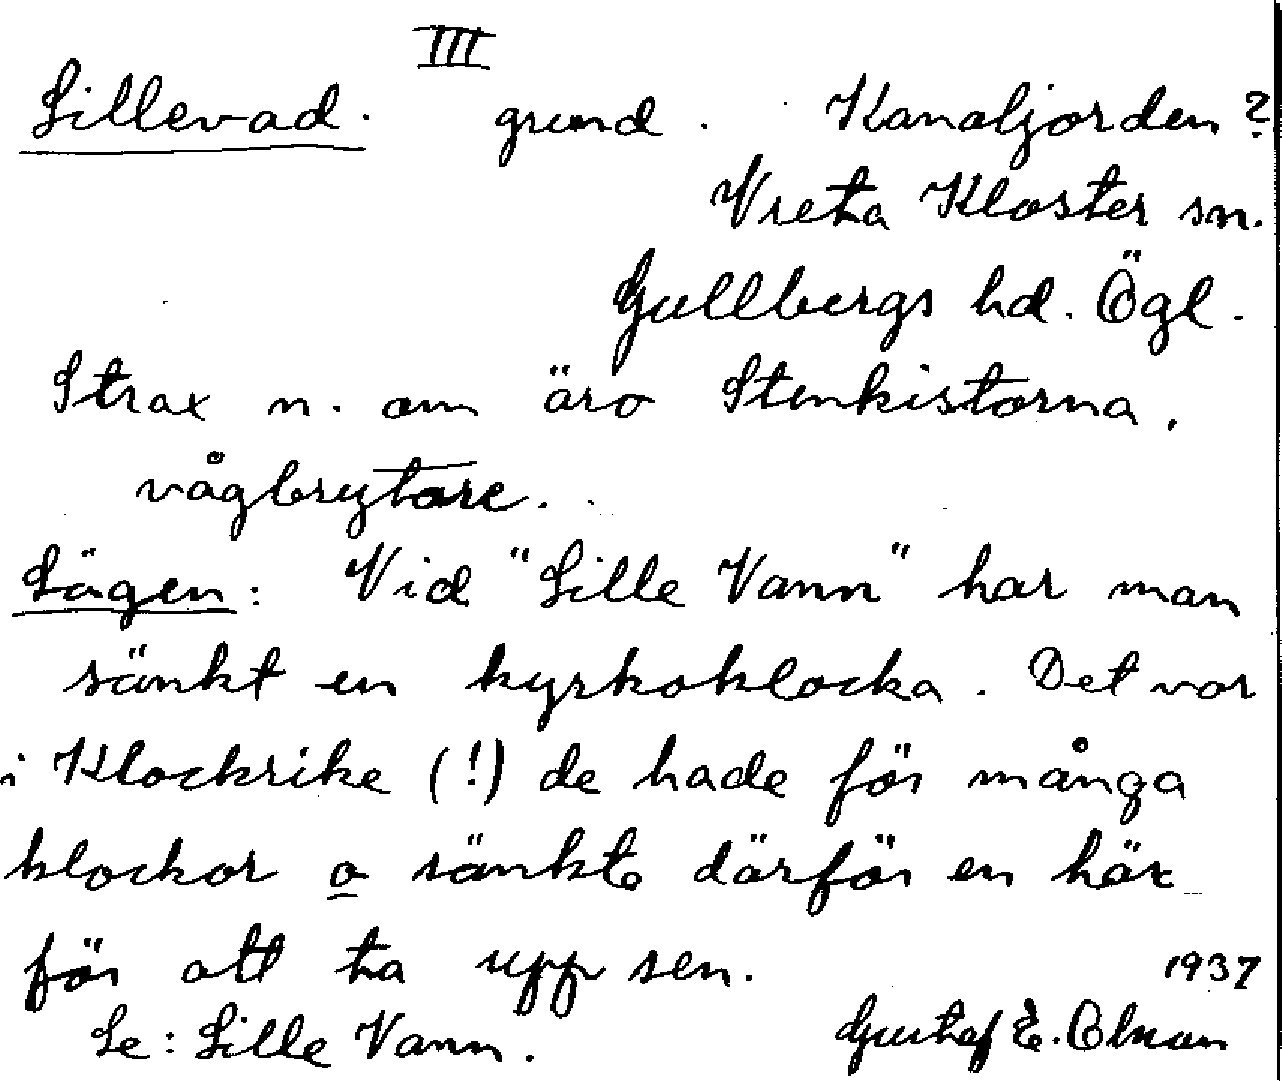 III
Sillevad. grund. Kanaljorden?
Vreta Kloster sn.
Gullbergs hd. Ögl.
Strax n. om äro Stenkistorna,
vågbrytare.
Sägen: Vid "Sille Vann" har man
sänkt en kyrkoklocka. Det var
i Klockrike (!) de hade för många
klockor o sänkte därför en här
för att ta upp sen.
1937
Se: Sille Vann. Gustaf E.